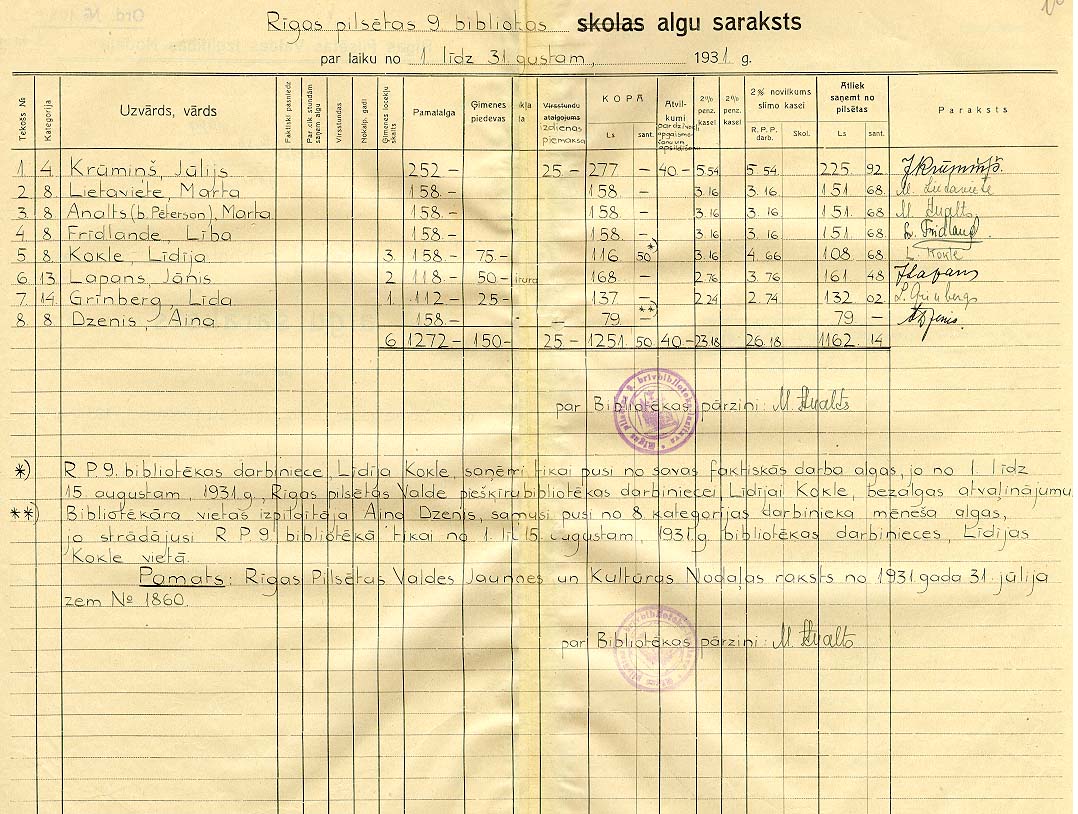 Rīgas pilsētas 9. bibliotēkas skolas algu saraksts
par laiku no 1 līdz 31 gustam, 1931. g.
Tekošs № Kategorija Uzvārds, vārds Faktiski pasniedz Par cik stundām saņem algu Virsstundas Nokalp. gadi Ģimenes locekļu skaits Pamatalga Ģimenes piedevas Virsstundu atalgojums izdienas piemaksa KOPĀ Ls sant. Atvilkumi par dzīvokli, apgaismošanu un apsildīšanu 2% penz. kasei 2% penz. kasei 2% novilkums slimo kasei R. P. P. darb. Skol. Atliek saņemt no pilsētas Ls sant. Paraksts
1. 4. Krūmiņš, Jūlijs 252 — 25 — 277 — 40 — 5.54 5.54 225. 92 J Krūmiņš.
2. 8 Lietaviete, Marta 158. — 158. — 3.16 3.16 151 68. M. Lietaviete
3. 8 Analts (b. Peterson), Marta 158. — 158 — 3.16 3.16 151. 68 M.
4 8 Frīdlande, Lība 158. — 158. — 3.16 3.16 151. 68 Frīdland
5 8 Kokle, Līdīja 3. 158 — 75. — 116 50 *) 3.16 4.66 108 68 L. Kokle
6. 13. Lapans, Jānis 2 118 — 50 — 168. — 2.76 3.76 161. 48 J Lapans
7. 14. Grīnberg, Līda 1. 112 — 25 — 137. — 2.24 2.74 132 02. L. Grīnbergs
8. 8 Dzenis, Aina 158. — — 79. — **) 79 — A Dzenis.
6 1272 — 150 — 25. — 1251. 50 40 — 23.18 26.18 1162. 14
par Bibliotēkas pārzini: M.
*) R. P. 9. bibliotēkas darbiniece, Līdīja Kokle, saņēmi tikai pusi no savas faktiskās darba algas, jo no 1. līdz
15. augustam, 1931. g., Rīgas pilsētas Valde piešķīru bibliotēkas darbiniecei, Līdījai Kokle, bezalgas atvaļinājumu.
**) Bibliotēkāra vietas izpildītāja Aina Dzenis, saņņusi pusi no 8. kategorijas darbinieka mēneša algas,
jo strādājusi R. P. 9. bibliotēkā tikai no 1. lī 15. augustam, 1931. g. bibliotēkas darbinieces, Līdījas
Kokle vietā.
Pamats: Rīgas Pilsētas Valdes Jaunnes un Kultūras Nodaļas raksts no 1931. gada 31. jūlija
zem № 1860.
par Bibliotēkas pārzini: M.